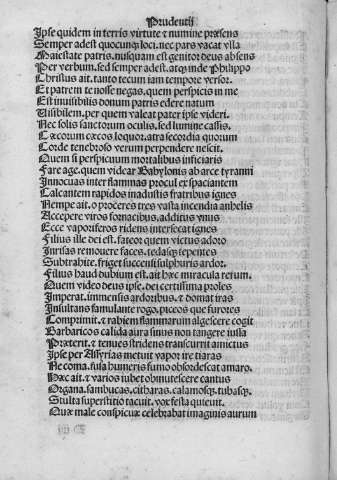 Prudentij
Ipse quidem in terris virtute et numine præsens
Semper adest quocunqꝫ loci. nec pars vacat vlla
Maiestate patris. nusquam est genitor deus absens
Per verbum, sed semper adest. atqꝫ inde Philippo
Christus ait. tanto tecum iam tempore versor.
Et patrem te nosse negas. quem perspicis in me
Est inuisibilis donum patris edere natum
Uisibilem. per quem valeat pater ipse videri.
Nec solis sanctorum oculis, sed lumine cassis.
Cæcorum cæcos loquor. atra secordia quorum
Corde tenebroso verum perpendere nescit.
Quem si perspicuum mortalibus inficiaris
Fare age. quem videat Babylonis ab arce tyranni
Innocuas inter flammas procul exspaciantem
Calcantem rapidos inadustis fratribus ignes
Nempe ait. o proceres tres vasta incendia anhelis
Accepere viros fornacibus. additus vnus
Ecce vaporiferos ridens intersecat ignes
Filius ille dei est. fateor quem victus adoro
Inrisas remouere faces. tedasqꝫ tepentes
Subtrahite. friget succensi sulphuris ardor.
Filius haud dubium est. ait hæc miracula rerum.
Quem video deus ipse. dei certissima proles
Imperat. immensis ardoribus. et domat iras
Insultans famulante rogo. piceos que furores
Comprimit. et rabiem flammarum algescere cogit
Barbaricos calida aura sinus non tangere iussa
Præterit. et tenues stridens transcurrit amictus
Ipse per Assyrias metuit vapor ire tiaras
Ne coma. fusa humeris fumo obsordescat amaro.
Hæc ait. et varios iubet obmutescere cantus
Organa. sambucas. citharas. calamosqꝫ. tubasqꝫ.
Stulta superstitio tacuit. vox festa quieuit.
Quæ male conspicuæ celebrabat imaginis aurum